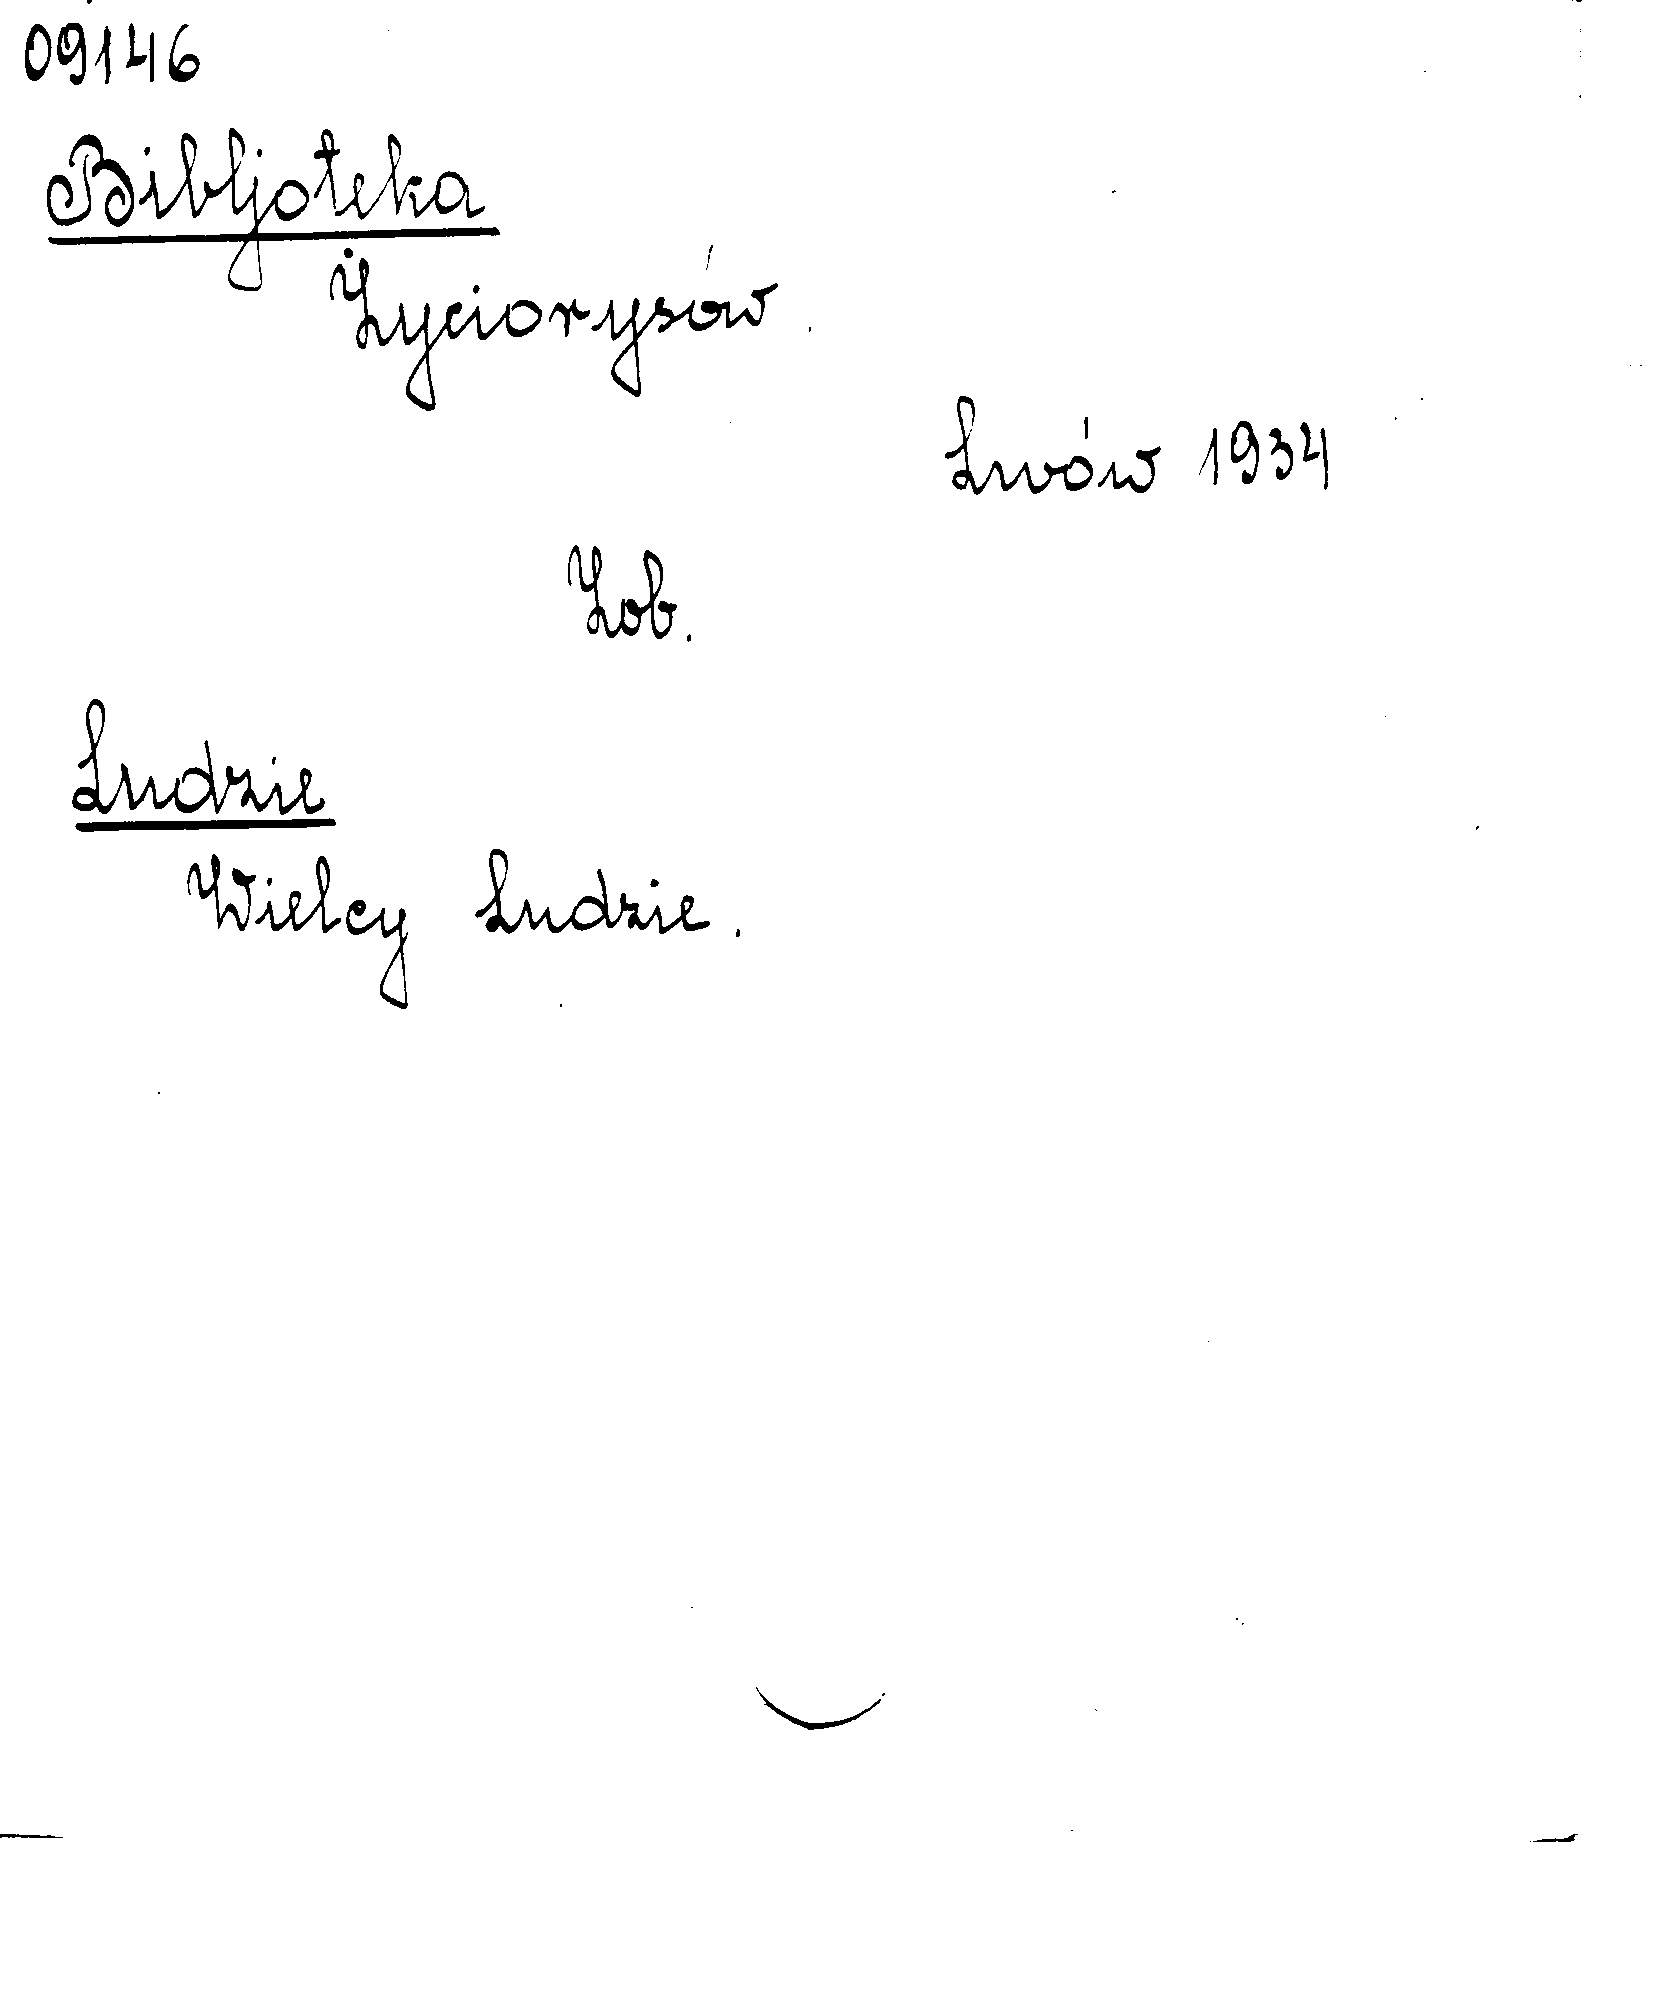 09146
Bibljoteka
Życiorysów.
Lwów 1934
Zob.
Ludzie
Wielcy Ludzie.